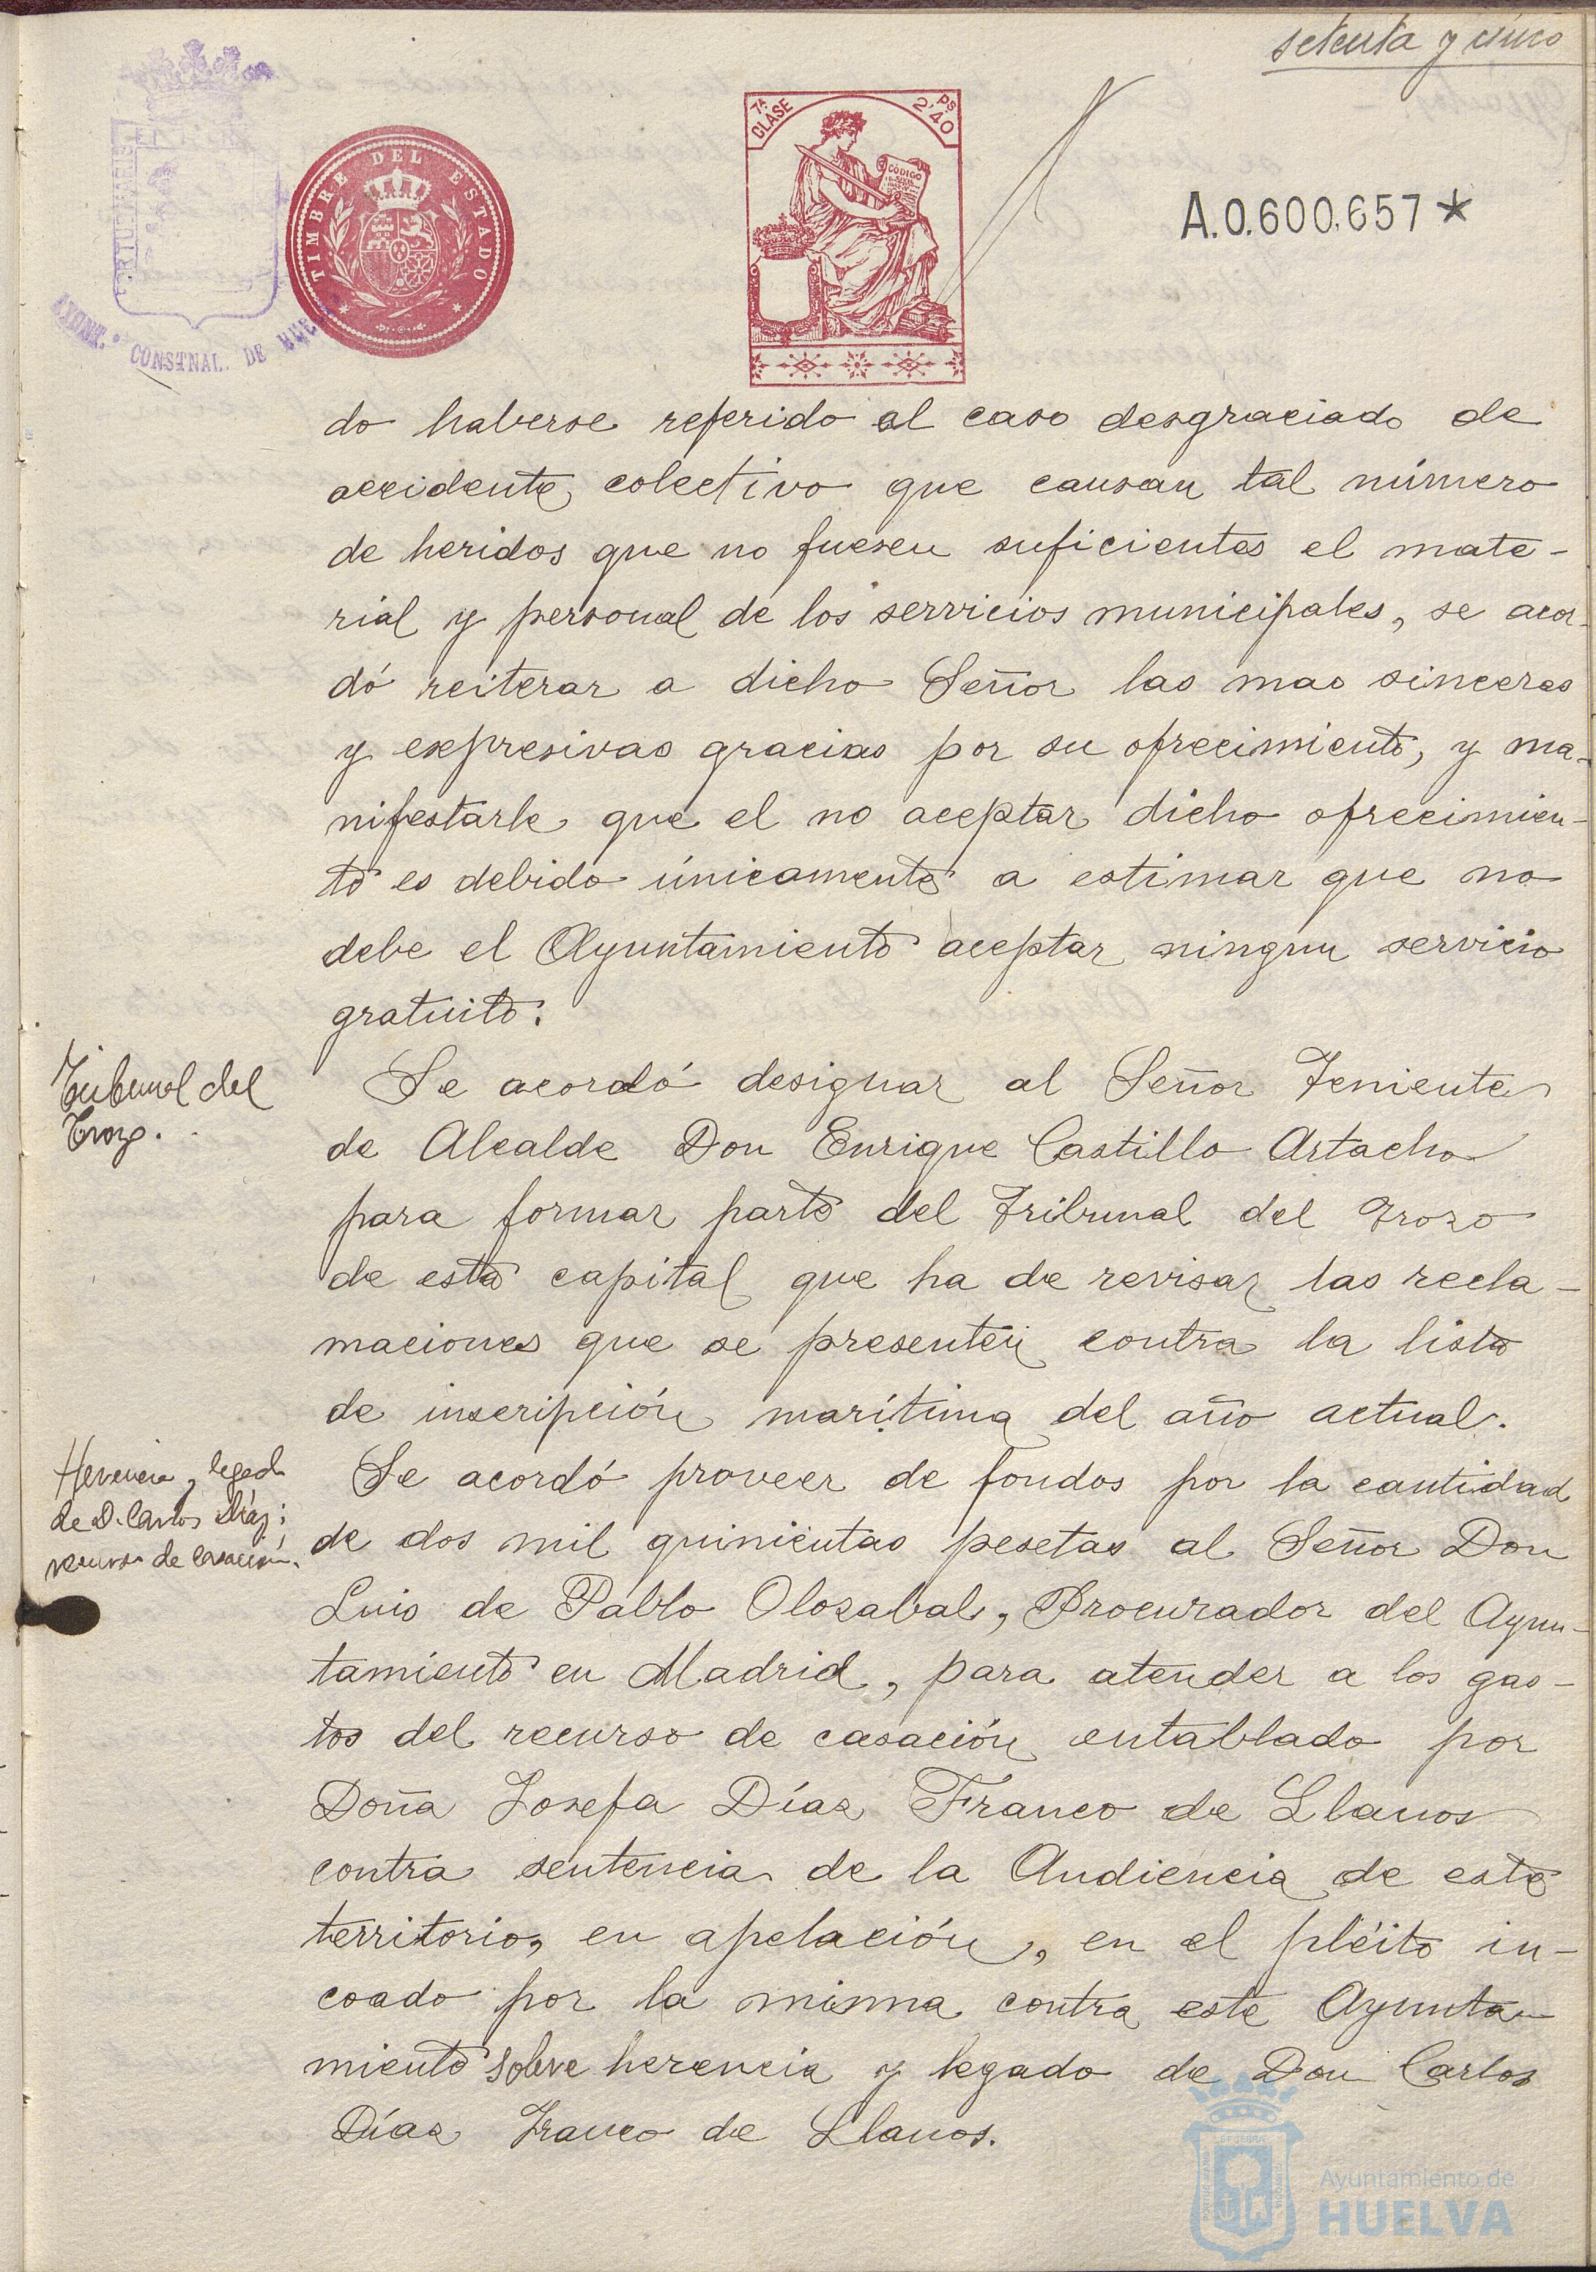 setenta y cinco
7ª CLASE
2'40 Ps
CÓDIGO
TIMBRE DEL ESTADO
A.0.600.657*
CONSTNAL. DE
do haberse referido al caso desgraciado de
accidente colectivo que causan tal número
de heridos que no fuesen suficientes el mate-
rial y personal de los servicios municipales, se acor-
dó reiterar a dicho Señor las mas sinceras
y expresivas gracias por su ofrecimiento, y ma-
nifestarle que el no aceptar dicho ofrecimien-
to es debido únicamente a estimar que no
debe el Ayuntamiento aceptar ningun servicio
gratuito.
Tribunal del
Trozo.
Se acordó designar al Señor Teniente
de Alcalde Don Enrique Castillo Artacho
para formar parte del Tribunal del Trozo
de esta capital que ha de revisar las recla-
maciones que se presenten contra la lista
de inscripción marítima del año actual.
Herencia y legado
de D. Carlos Díaz;
recurso de casación.
Se acordó proveer de fondos por la cantidad
de dos mil quinientas pesetas al Señor Don
Luis de Pablo Olozabal, Procurador del Ayun-
tamiento en Madrid, para atender a los gas-
tos del recurso de casación entablado por
Doña Josefa Díaz Franco de Llanos
contra sentencia de la Audiencia de este
territorio, en apelación, en el pléito in-
coado por la misma contra este Ayunta-
miento sobre herencia y legado de Don Carlos
Díaz Franco de Llanos.
Ayuntamiento de
HUELVA